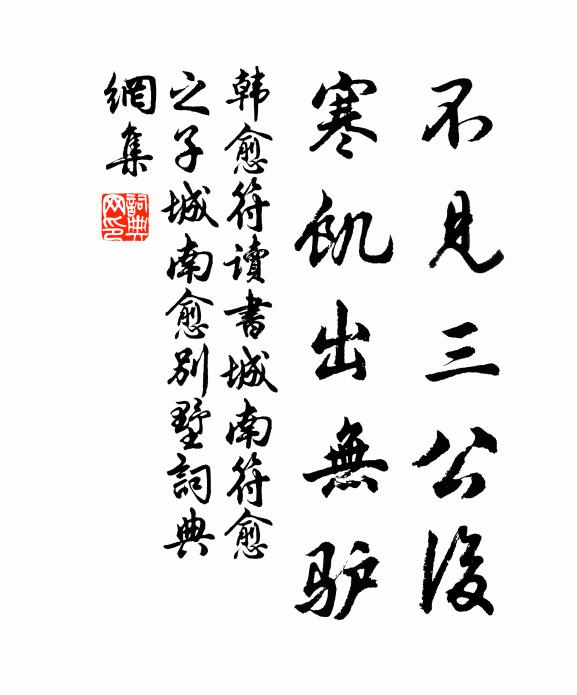 不見三公後
寒飢出無驴
韩愈符讀書城南符愈
之子城南愈别墅詞典
網集
詞典
网印